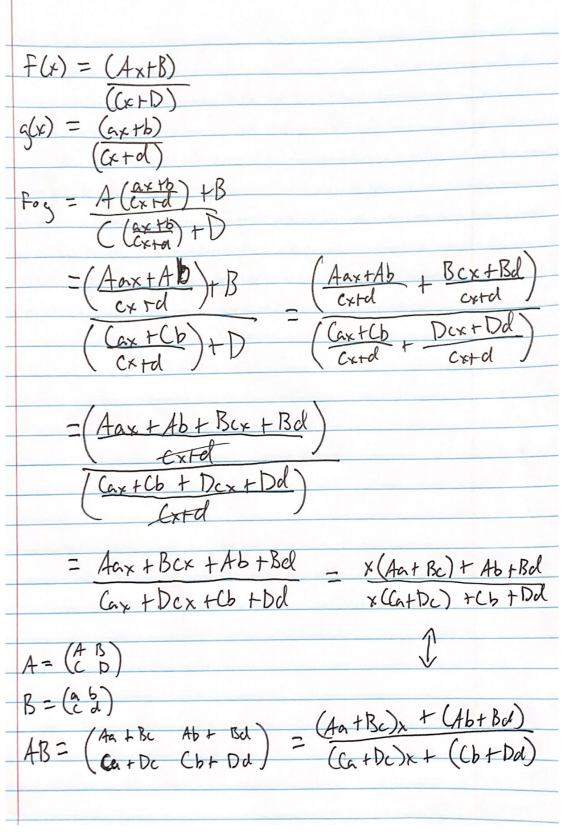 F(x) = (Ax+B)
(Cx+D)
g(x) = (ax+b)
(cx+d)
Fog = A((ax+b)/(cx+d)) + B
C((ax+b)/(cx+d)) + D
= ((Aax+Ab)/(cx+d)) + B = ((Aax+Ab)/(cx+d) + (Bcx+Bd)/(cx+d))
((Cax+Cb)/(cx+d)) + D ((Cax+Cb)/(cx+d) + (Dcx+Dd)/(cx+d))
= (Aax + Ab + Bcx + Bd)
cx+d
(Cax+Cb + Dcx + Dd)
cx+d
= Aax + Bcx + Ab + Bd = x(Aa+Bc) + Ab+Bd
Cax + Dcx + Cb + Dd x(Ca+Dc) + Cb + Dd
↕
A = (A B
C D)
B = (a b
c d)
AB = (Aa + Bc Ab + Bd = (Aa+Bc)x + (Ab+Bd)
Ca + Dc Cb + Dd) (Ca+Dc)x + (Cb+Dd)